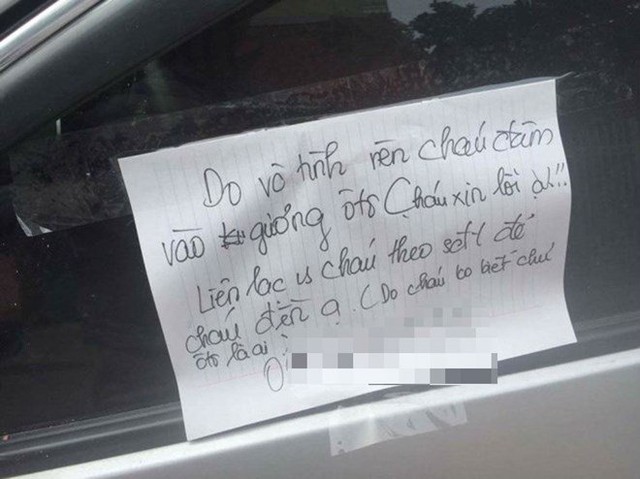 Do vô tình nên cháu đâm
vào gương ôtô Cháu xin lỗi ạ!!
Liên lạc vs cháu theo sđt để
cháu đền ạ. (Do cháu ko biết chủ
ôtô là ai
0